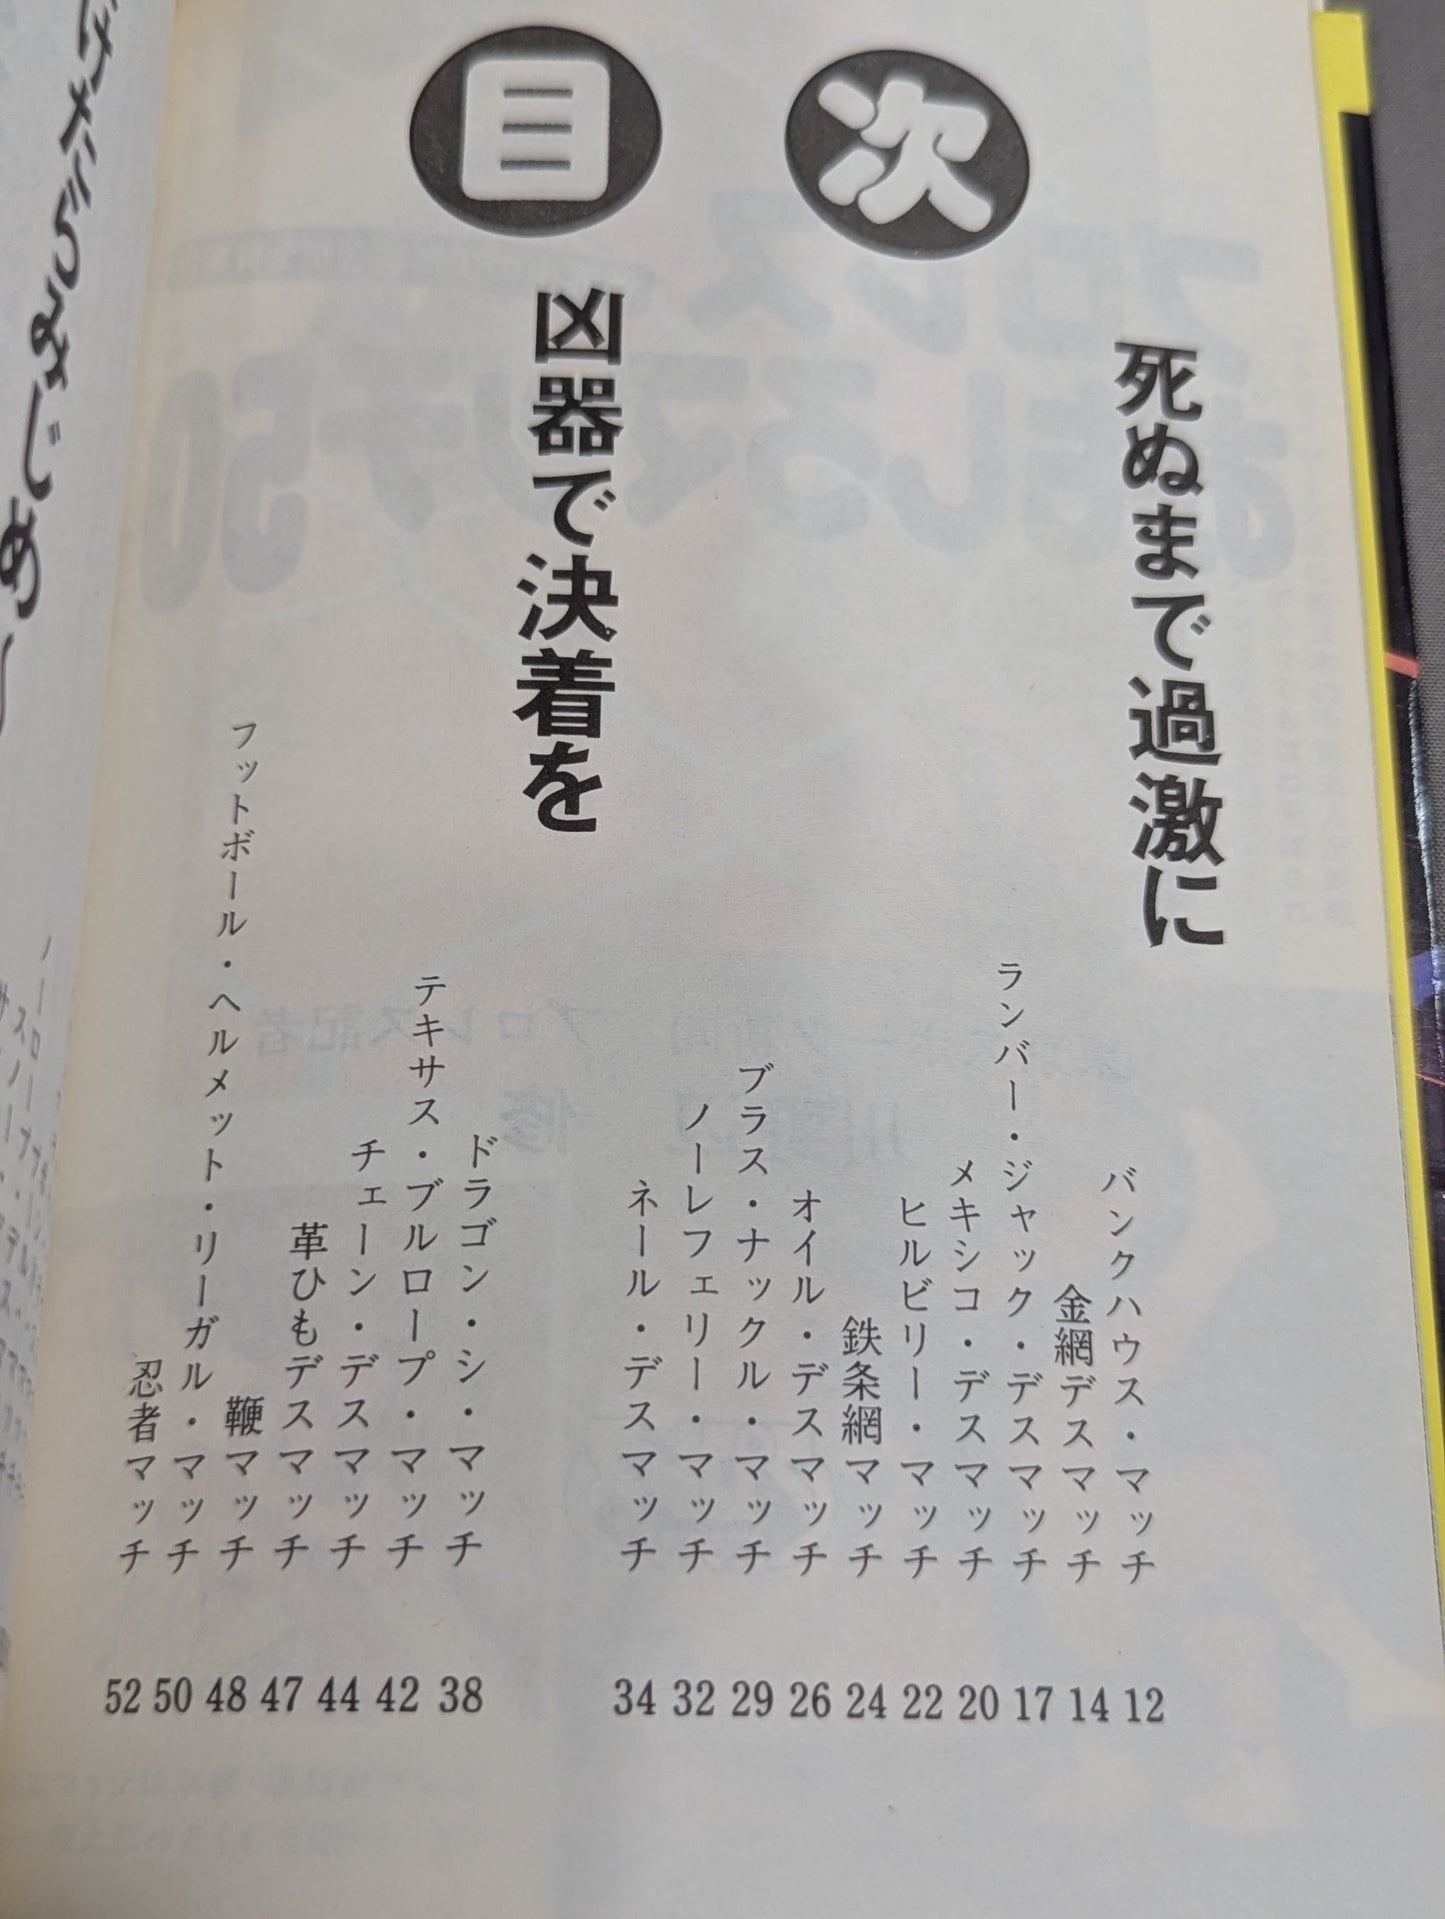 次目
死ぬまで過激に
バンクハウス・マッチ 12
金網デスマッチ 14
ランバー・ジャック・デスマッチ 17
メキシコ・デスマッチ 20
ヒルビリー・マッチ 22
鉄条網マッチ 24
オイル・デスマッチ 26
ブラス・ナックル・マッチ 29
ノーレフェリー・マッチ 32
ネール・デスマッチ 34
凶器で決着を
ドラゴン・シ・マッチ 38
テキサス・ブルロープ・マッチ 42
チェーン・デスマッチ 44
革ひもデスマッチ 47
鞭マッチ 48
フットボール・ヘルメット・リーガル・マッチ 50
忍者マッチ 52